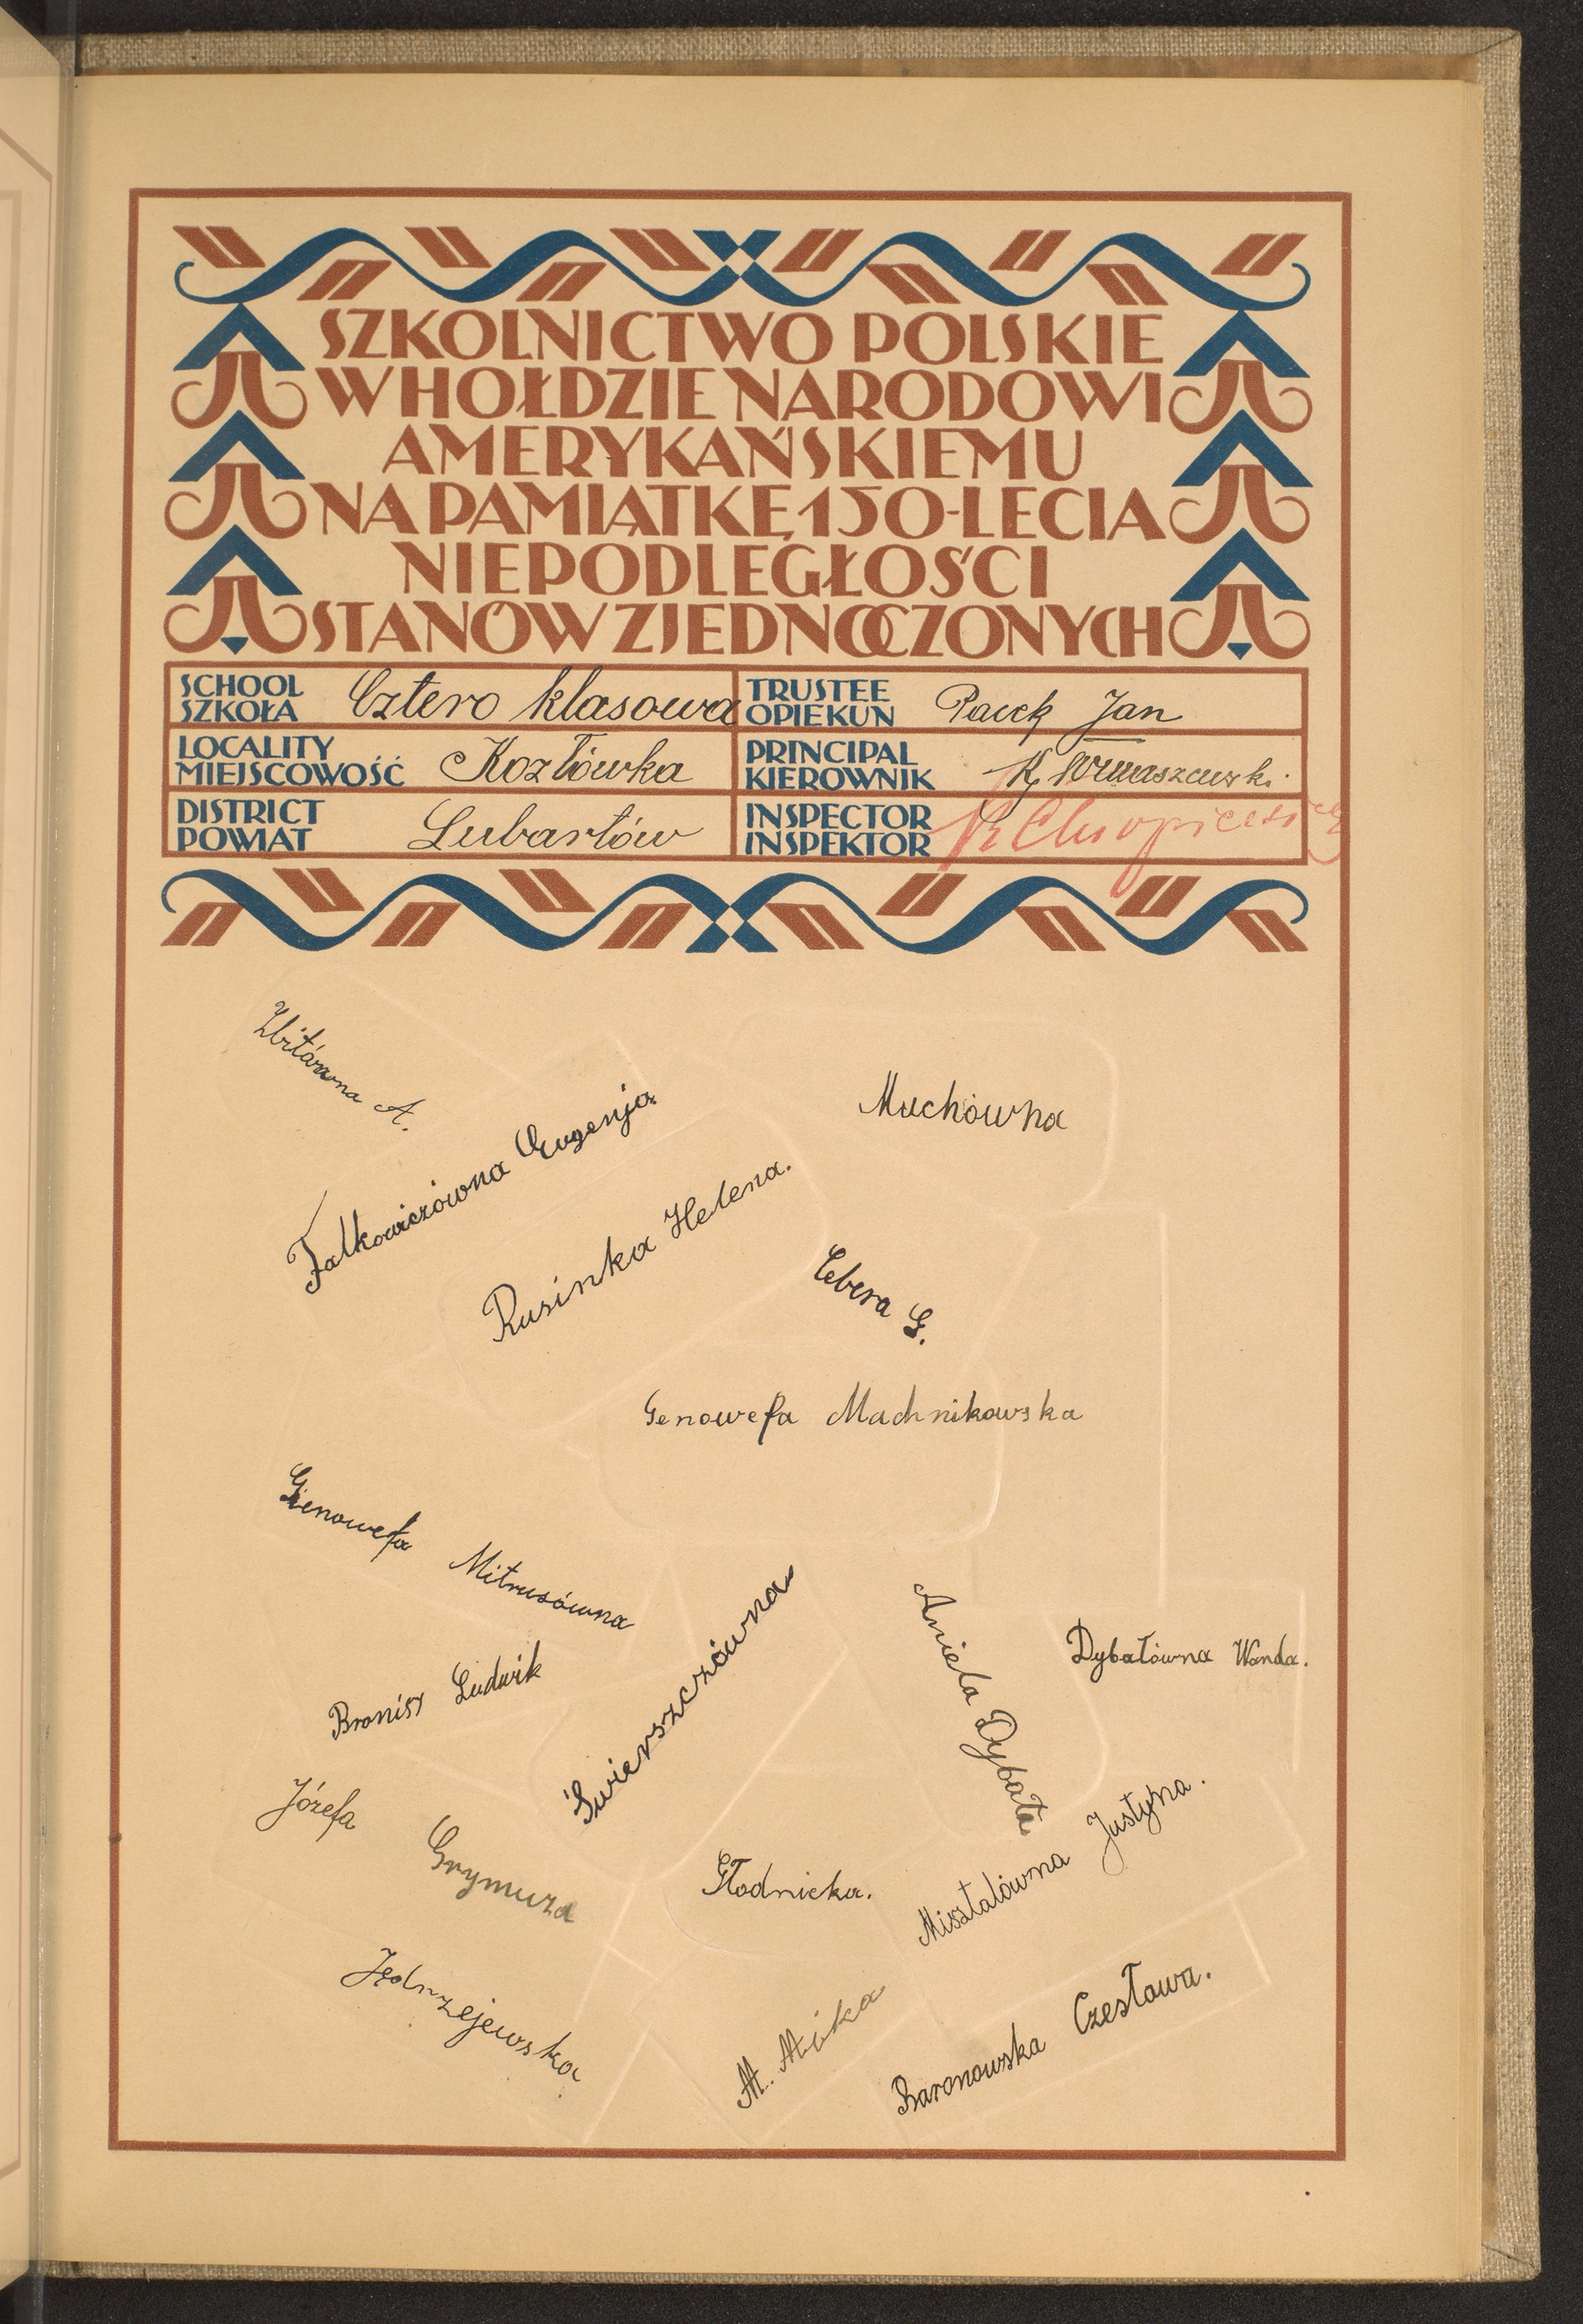 SZKOLNICTWO POLSKIE
W HOŁDZIE NARODOWI
AMERYKAŃSKIEMU
NA PAMIĄTKĘ 150-LECIA
NIEPODLEGŁOŚCI
STANÓW ZJEDNOCZONYCH
SCHOOL
SZKOŁA
Cztero klasowa
TRUSTEE
OPIEKUN
Jan
LOCALITY
MIEJSCOWOŚĆ
Kozłówka
PRINCIPAL
KIEROWNIK
DISTRICT
POWIAT
Lubartów
INSPECTOR
INSPEKTOR
Zbitówna A.
Muchówna
Falkowiczówna Eugenja
Rusinka Helena.
Cebera G.
Genowefa Machnikowska
Gienowefa Mitrusówna
Bronisz Ludwik
Świerszczówna
Aniela Dybała
Dybałówna Wanda.
Józefa Grymuza
Głodnicka.
Misztalówna Justyna.
Jędrzejewska
M. Mika
Baronowska Czesława.